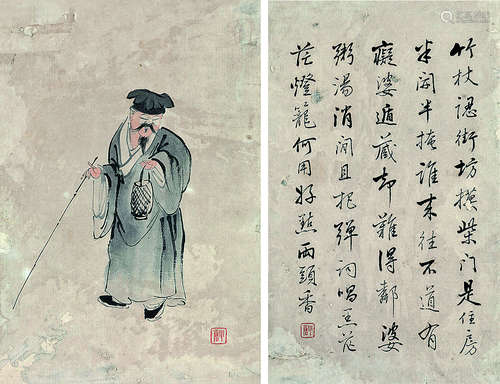 竹杖認街坊摸柴門是住房
半開半掩誰来往不道有
癡婆遁藏却難得鄰婆
粥湯消閒且把彈詞唱黑茫
茫燈籠何用好點兩頭香